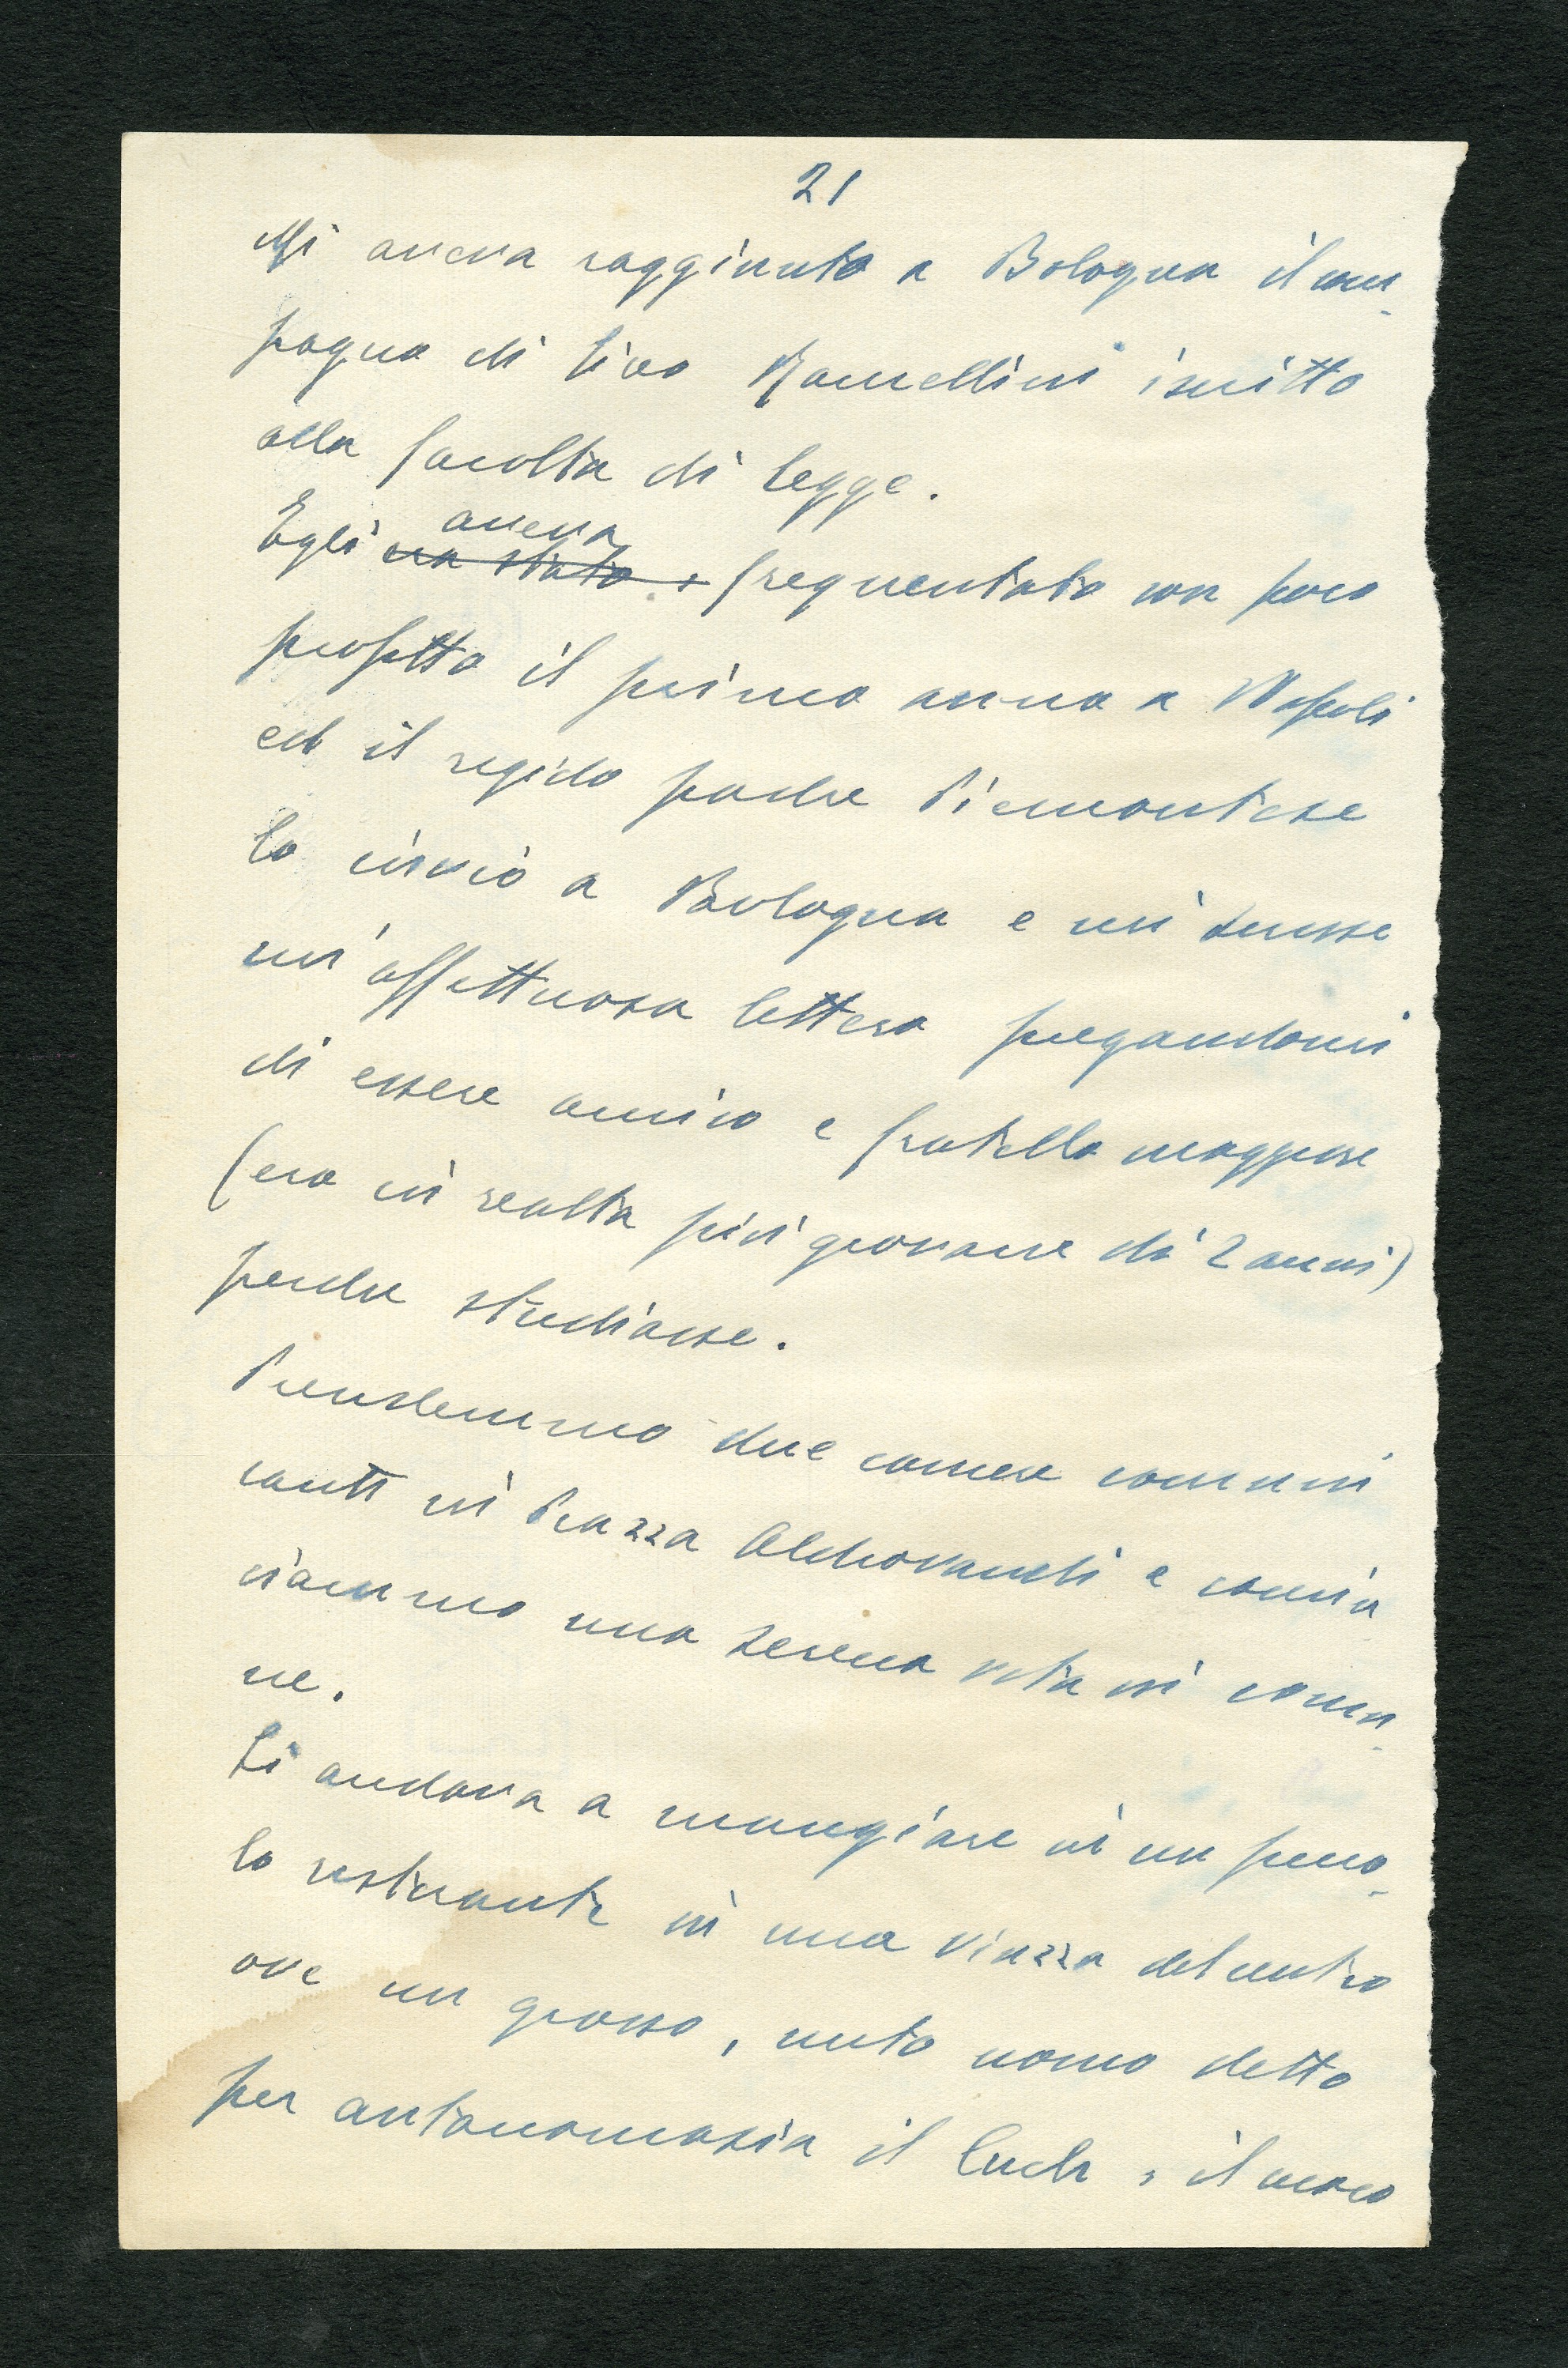 21
Mi aveva raggiunto a Bologna il com-
pagno di liceo Ramellini iscritto
alla facoltà di legge.
aveva
Egli era stato frequentato con poco
profitto il primo anno a Napoli
ed il rigido padre Piemontese
lo inviò a Bologna e mi scrisse
un'affettuosa lettera pregandomi
di essere amico e fratello maggiore
(ero in realtà più giovane di 2 anni)
perché studiasse.
Prendemmo due camere comuni
canti in Piazza Aldrovandi e comin
ciammo una serena vita in comu-
ne.
Si andava a mangiare in un picco-
lo ristorante in una viuzza del centro
ove un grosso, unto uomo detto
per antonomasia il , il